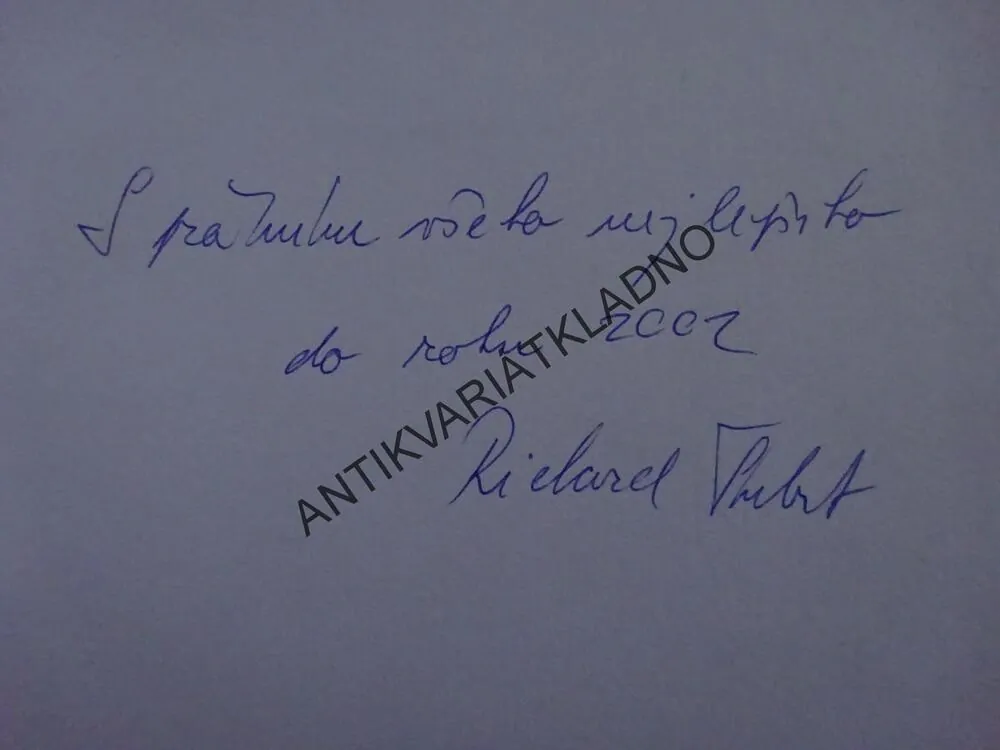 S přáním všeho nejlepšího
do roku 2002
Richard
ANTIKVARIATKLADNO